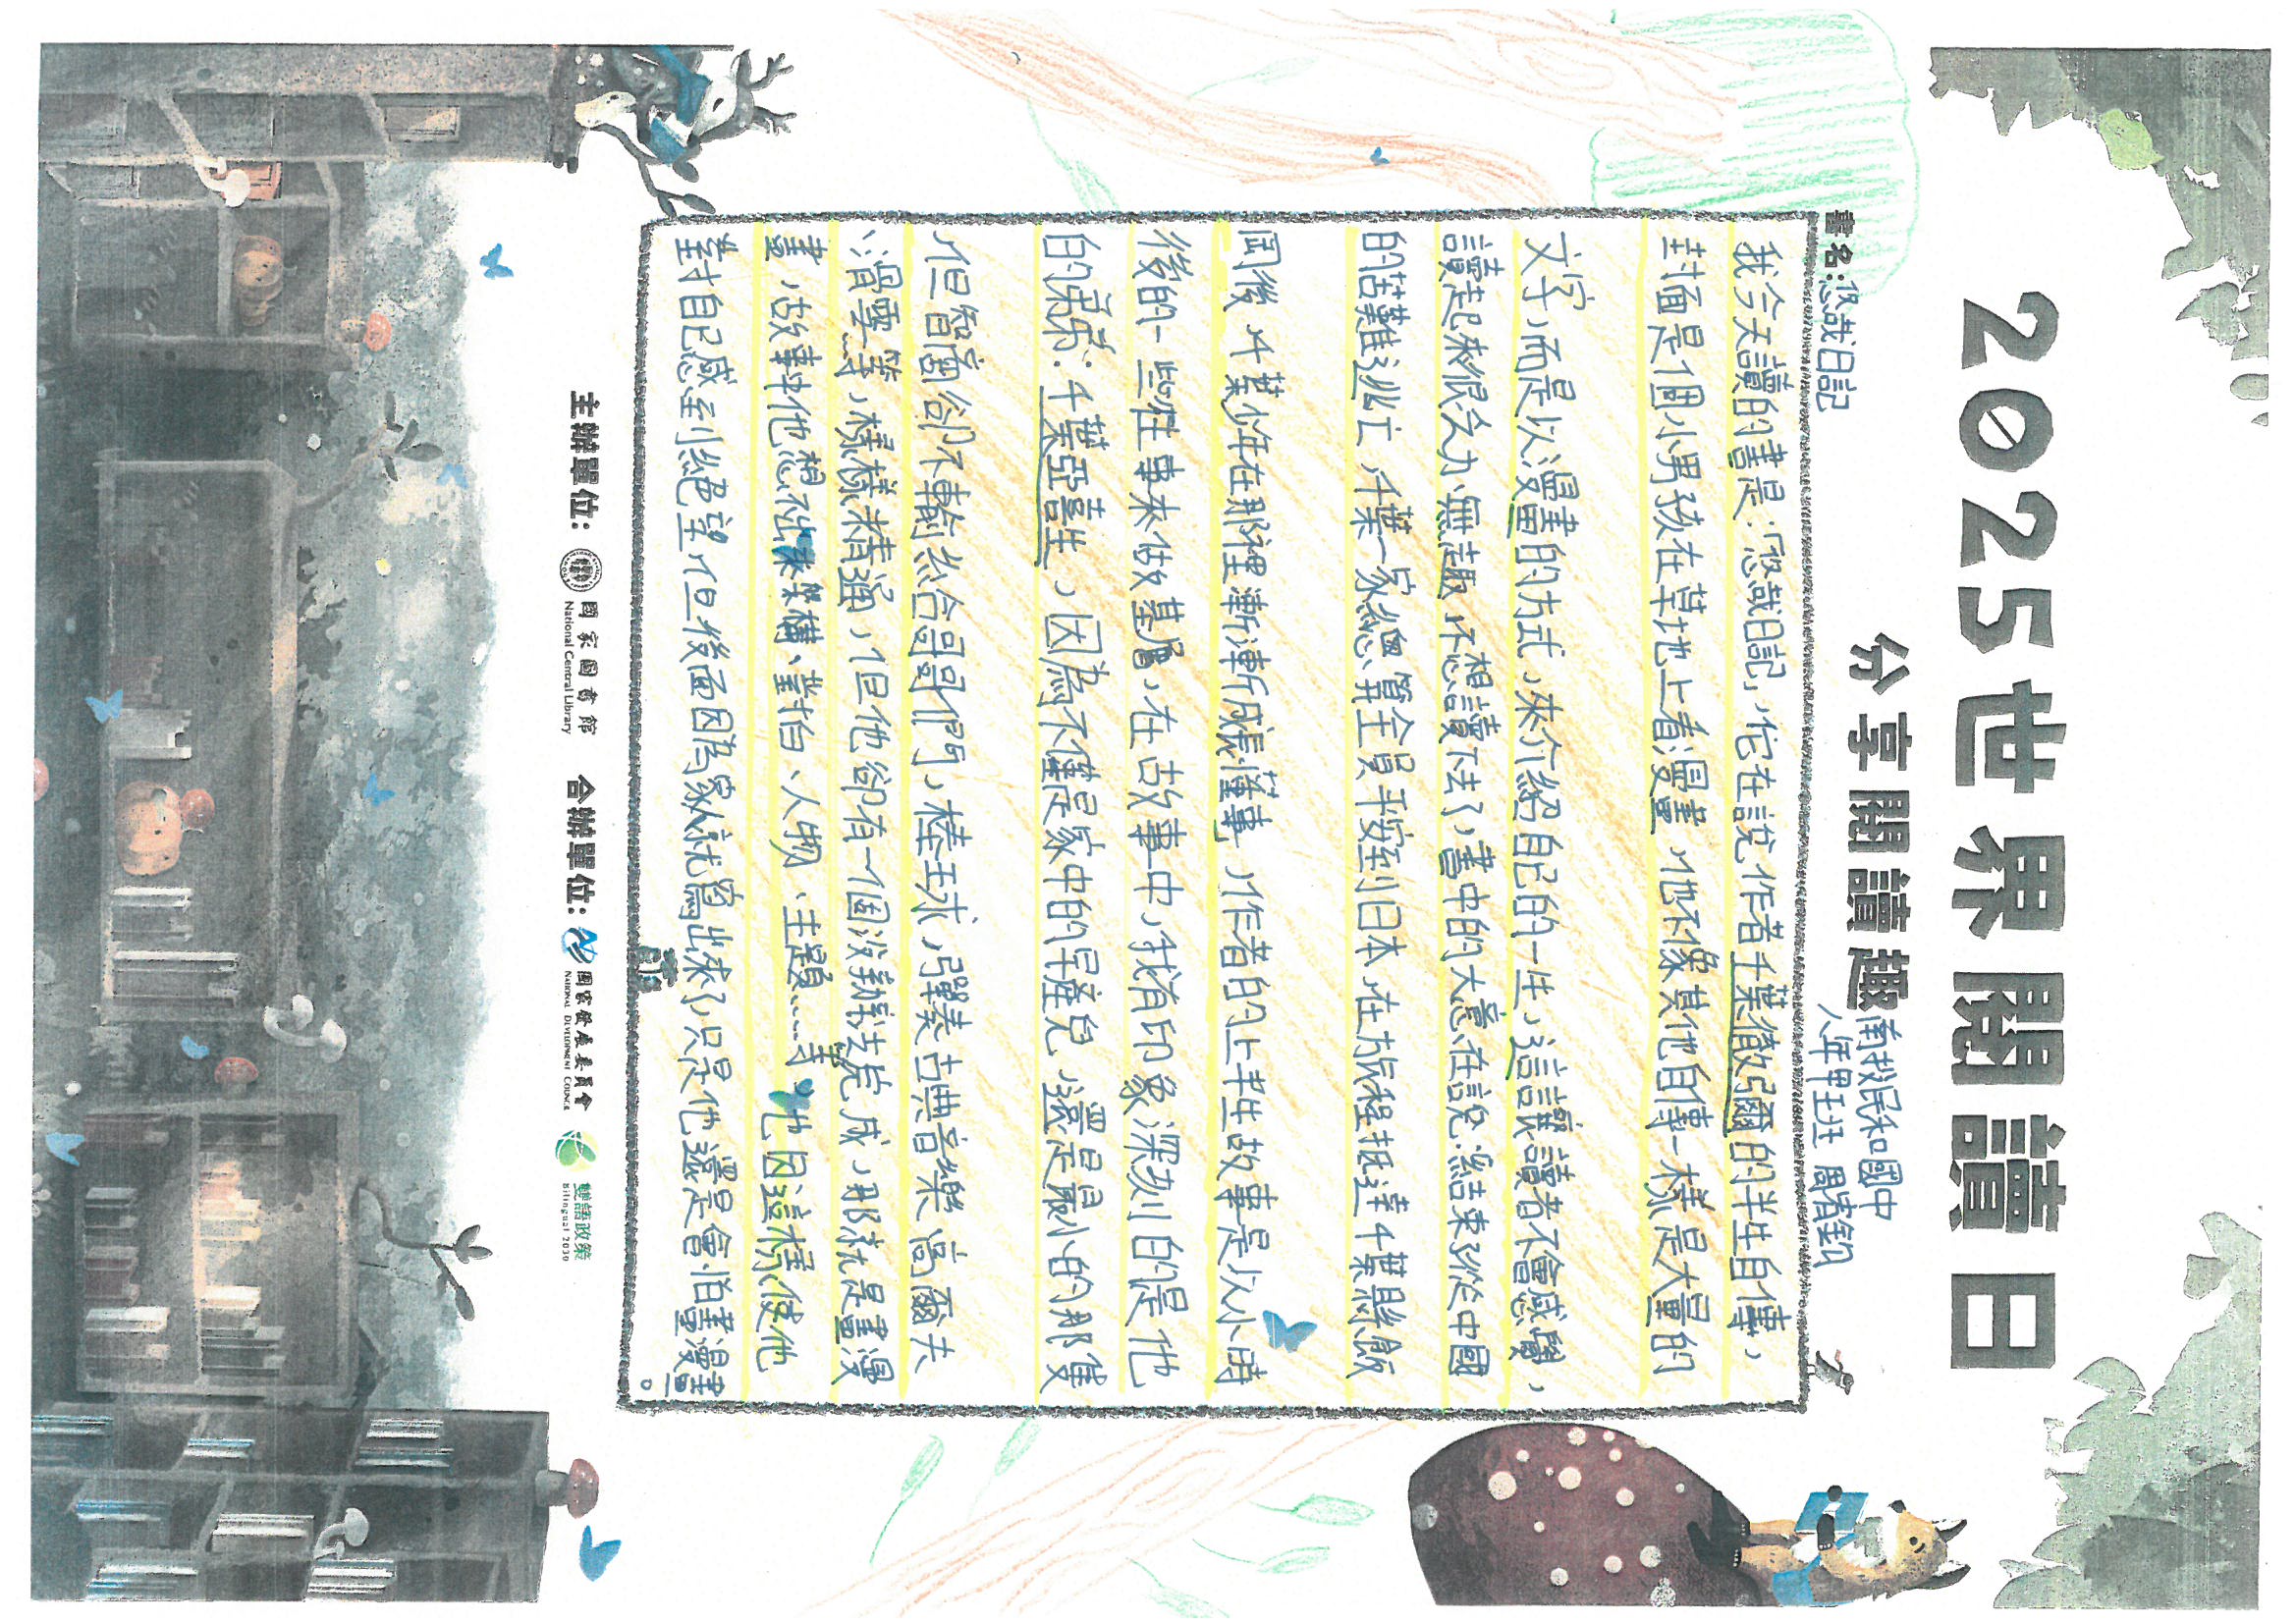 2025世界閱讀日
分享閱讀趣
南投民和國中
八年甲王班 周宥鈞
書名:怹哉日記
我今天讀的書是:怹哉日記,佗在說作者千葉徹彌爾的半生自傳,
封面是個小男孩在草地上看漫畫,他不像其他自傳一樣是大量的
文字,而是以漫畫的方式,來介紹自己的一生,這讓讀者不會感覺,
讀起來很吃力、無趣,不想讀下去了,書中的大意在說:從結束從中國
的苦難逃亡,千葉一家總算全員平安到日本,在旅程抵達千葉縣飯
岡後,千葉少年在那裡漸漸成長懂事,作者的上半生故事是以小時
後的一些往事來做基層,在故事中,我有印象深刻的是他
的弟弟:千葉亞喜生,因為不僅是家中的早產兒,還是最小的那隻
,但智商卻不輸給哥哥們,棒球,彈奏古典音樂,高爾夫
、滑雪等,樣樣精通,但他卻有一個沒辦法完成,那就是畫漫
畫,故事中他想不出來架構、對白、人物、主題……等,他因這樣使他
對自己感到絕望,但後面因為家人就寫出來了,只是他還是會怕畫漫畫
。
主辦單位:
國家圖書館
National Central Library
合辦單位:
國家發展委員會
National Development Council
雙語政策
Bilingual 2030